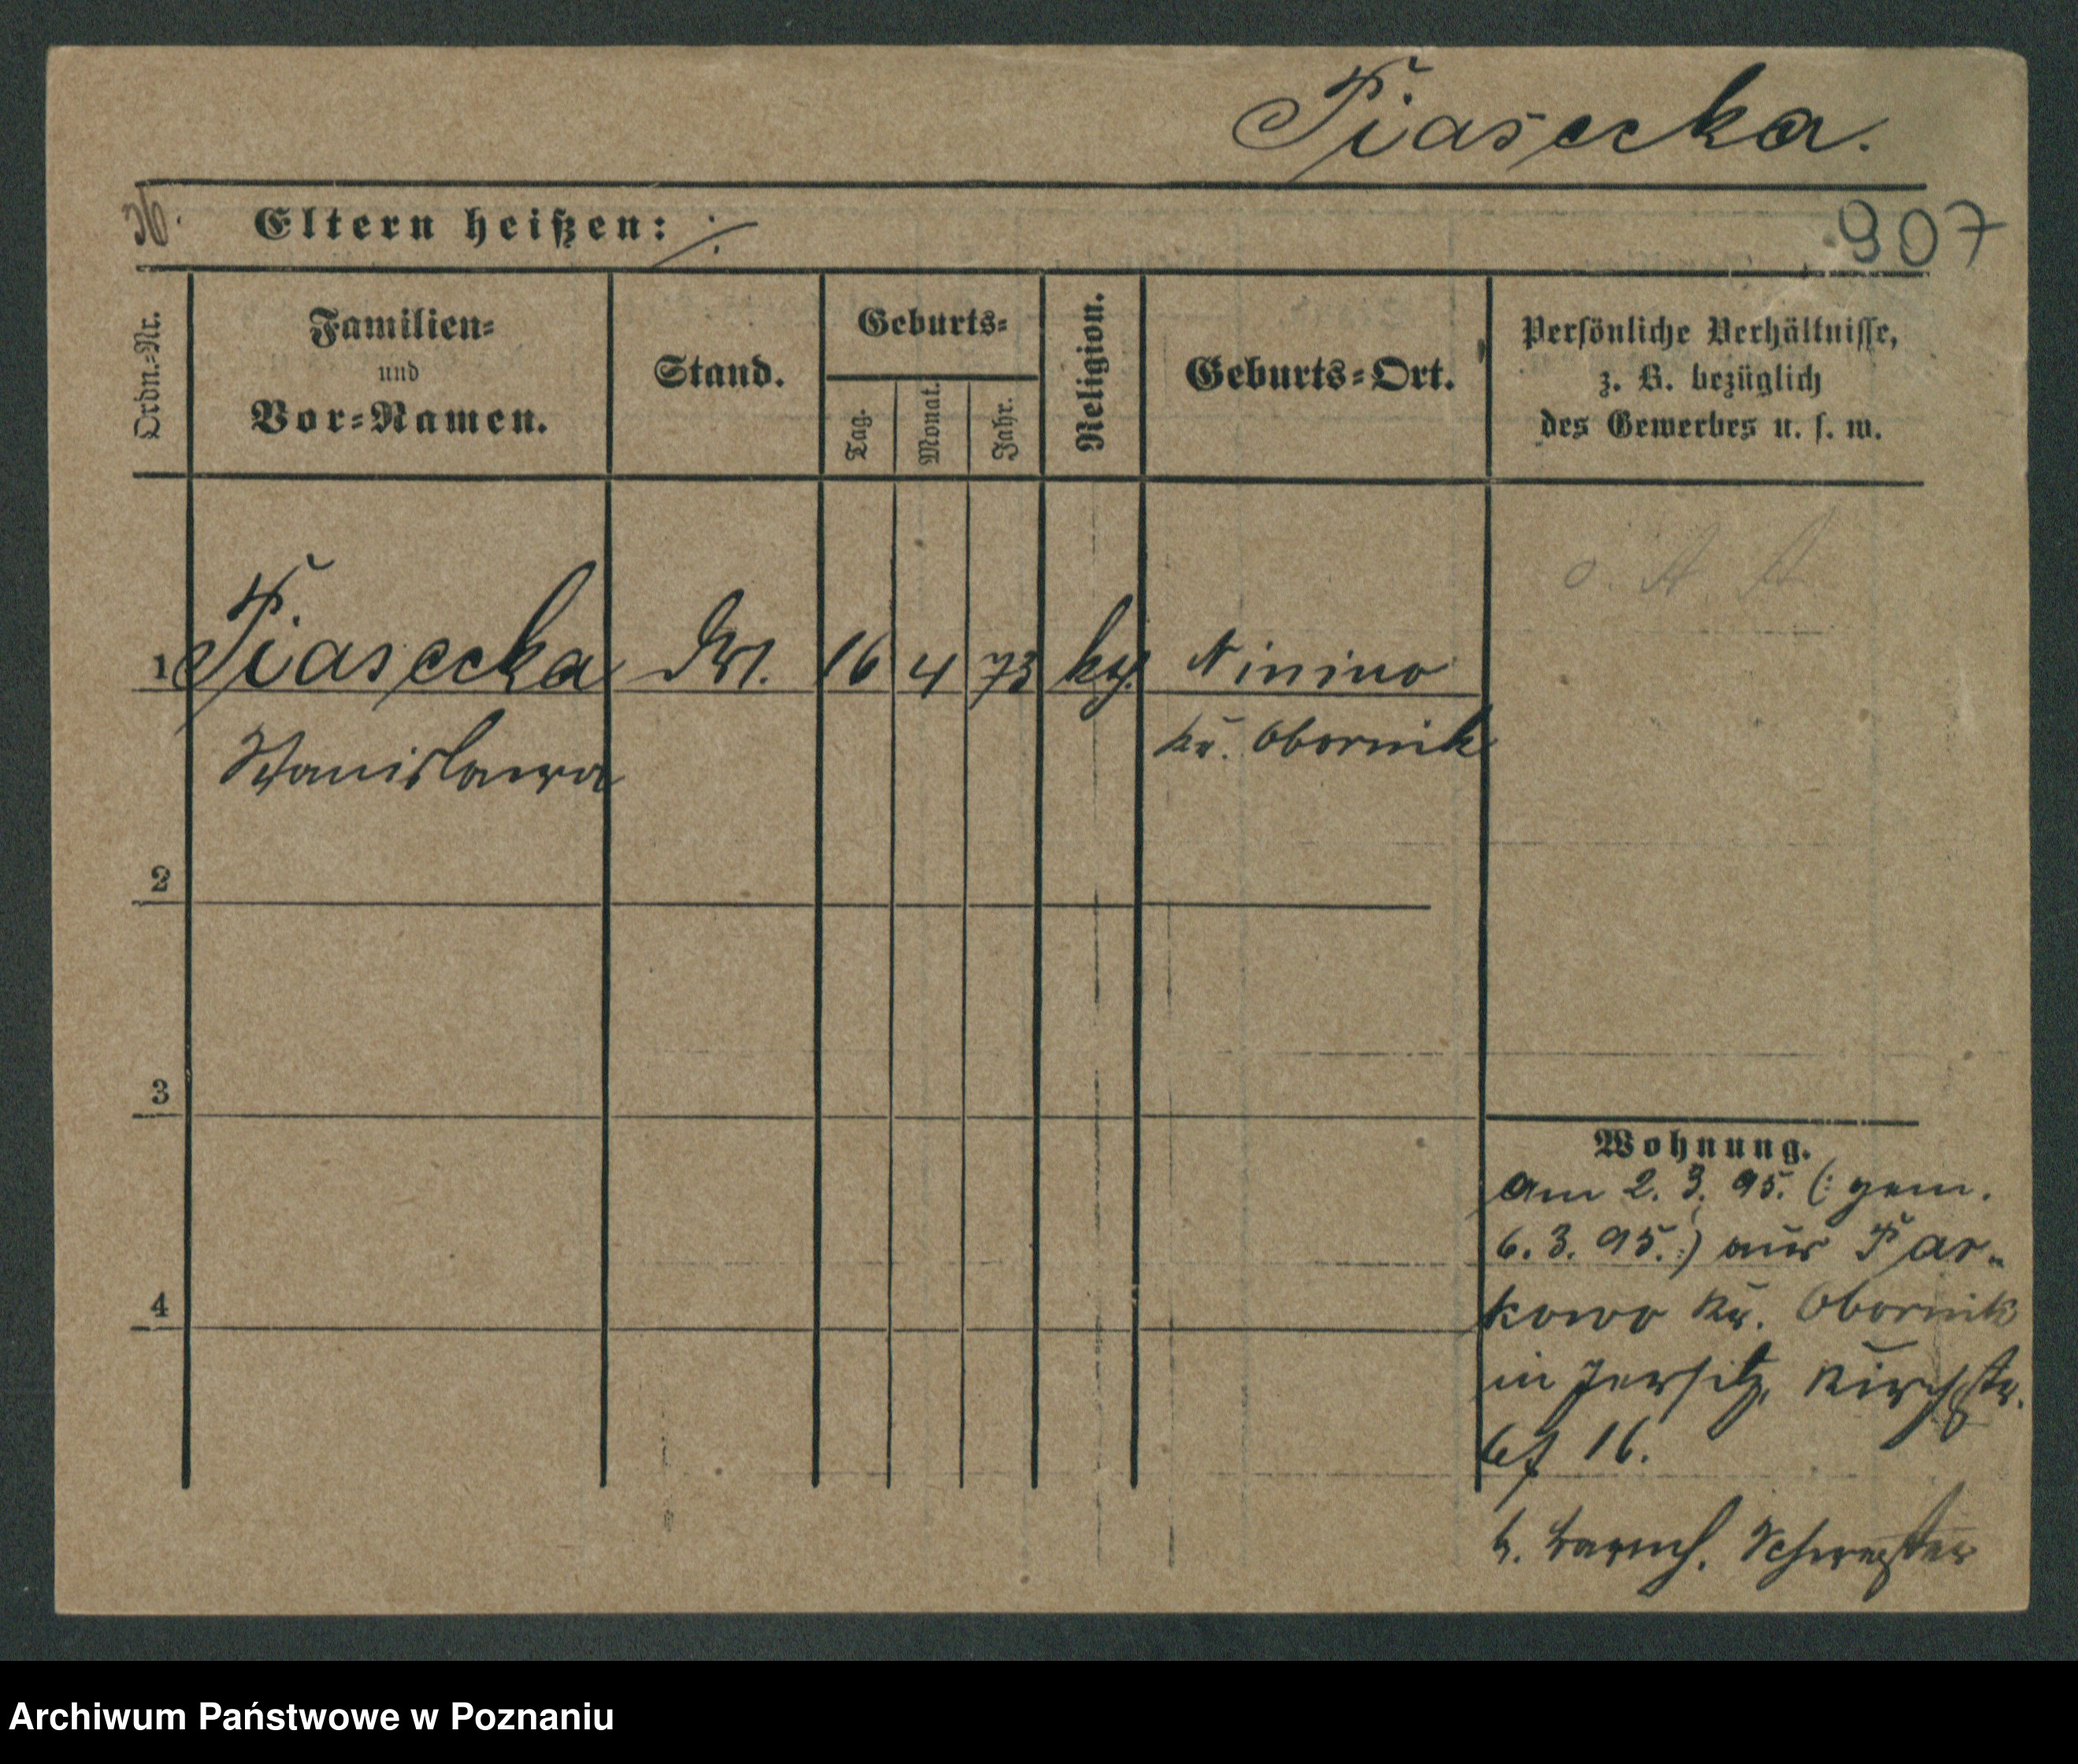 Piasecka.
36.
Eltern heißen: ·/·
907
Ordn.-Nr.
Familien-
und
Vor-Namen.
Stand.
Geburts-
Tag.
Monat.
Jahr.
Religion.
Geburts-Ort.
Persönliche Verhältnisse,
z. B. bezüglich
des Gewerbes u. s. w.
1 Piasecka Frl. 16 4 73 kth. Ninino
Stanislawa
Kr. Obornik
2
3
4
Wohnung.
am 2. 3. 95. (: gem.
6. 3. 95. :) aus Par-
kowo Kr. Obornik
in Jersitz, Kirchstr.
16.
b. Schwester
Archiwum Państwowe w Poznaniu